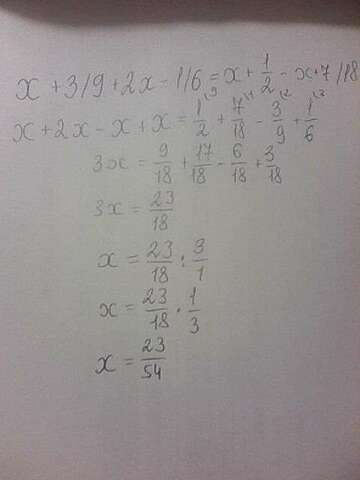 x + 3/9 + 2x - 1/6 = x + 1/2 - x + 7/18
x + 2x - x + x = 1/2 + 7/18 - 3/9 + 1/6
3x = 9/18 + 17/18 - 6/18 + 3/18
3x = 23/18
x = 23/18 : 3/1
x = 23/18 · 1/3
x = 23/54